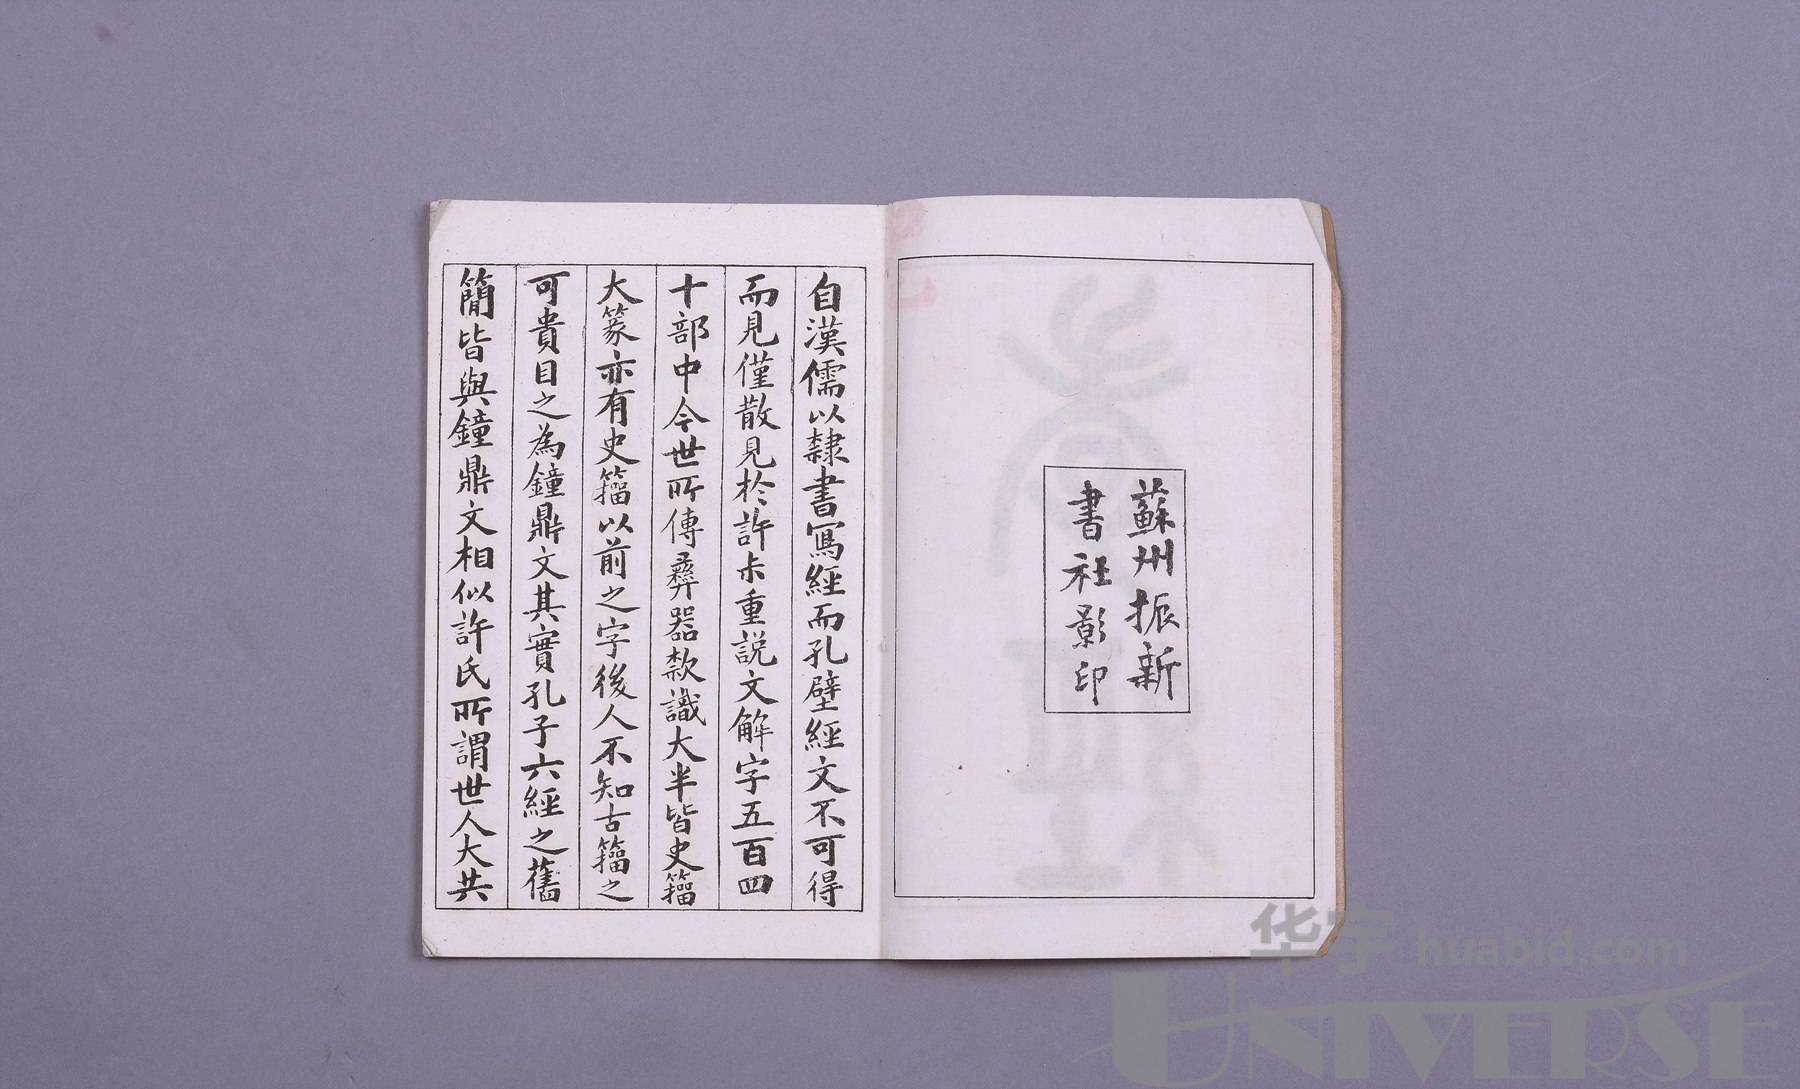 蘇州振新
書社影印
自漢儒以隸書寫經而孔壁經文不可得
而見僅散見於許尗重說文解字五百四
十部中今世所傳彝器款識大半皆史籀
大篆亦有史籀以前之字後人不知古籀之
可貴目之為鐘鼎文其實孔子六經之舊
簡皆與鐘鼎文相似許氏所謂世人大共
华宇 huabid.com
UNIVERSE